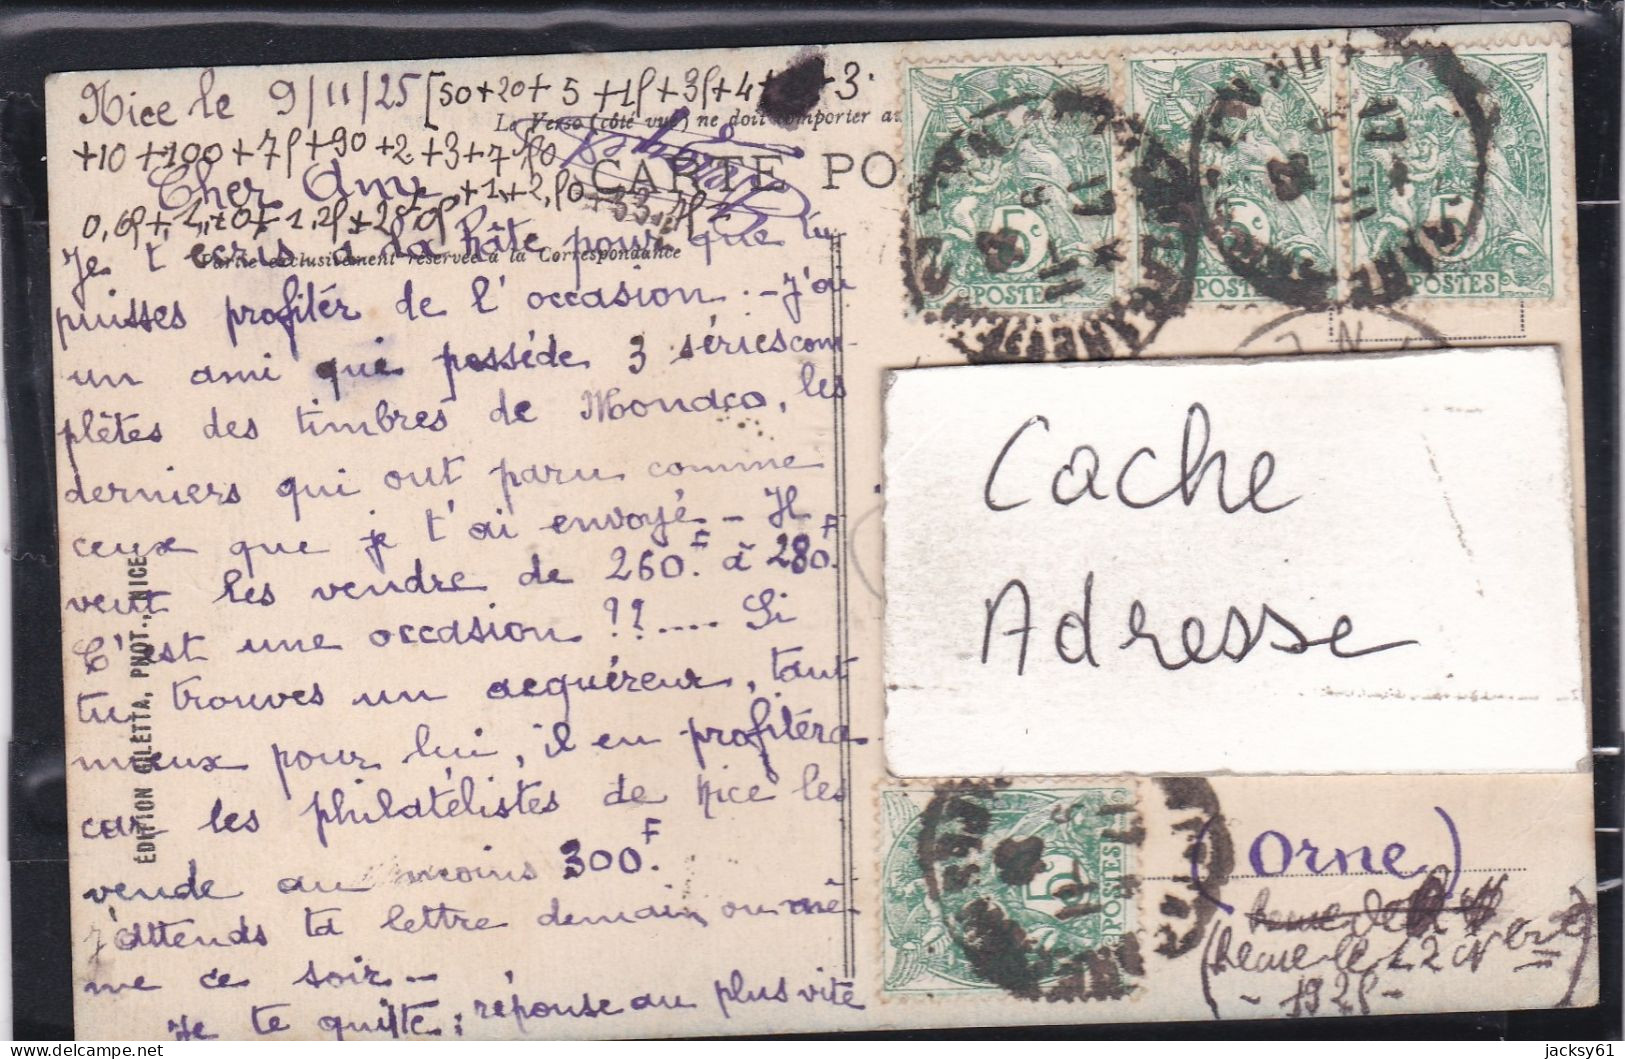 Nice le 9/11/25 [50+20+5+1f+3f+4+ +3.
Le Verso (côté vue) ne doit comporter au
+10+100+7f+90+2+3+7f0
CARTE PO
Cher Ami +1+2,f0
Je t'ecris a la hâte pour que tu
Partie exclusivement réservée à la Correspondance
puisses profitér de l'occasion. - J'ai
un ami qui posséde 3 séries com-
plètes des timbres de Monaco, les
derniers qui ont paru comme
ceux que je t'ai envoyé - Il
veut les vendre de 260.F à 280.F
C'est une occasion !!..... Si
tu trouves un acquéreur, tant
mieux pour lui, il en profitéra
car les philatélistes de Nice les
vende au moins 300.F
j'attends ta lettre demain ou mê-
me ce soir -
Je te quitte ; réponse au plus vite
ÉDITION GILETTA, PHOT., NICE
5c
POSTES
5c
POSTES
5
POSTES
Cache
Adresse
5
POSTES
(Orne)
jacksy61
delcampe.net